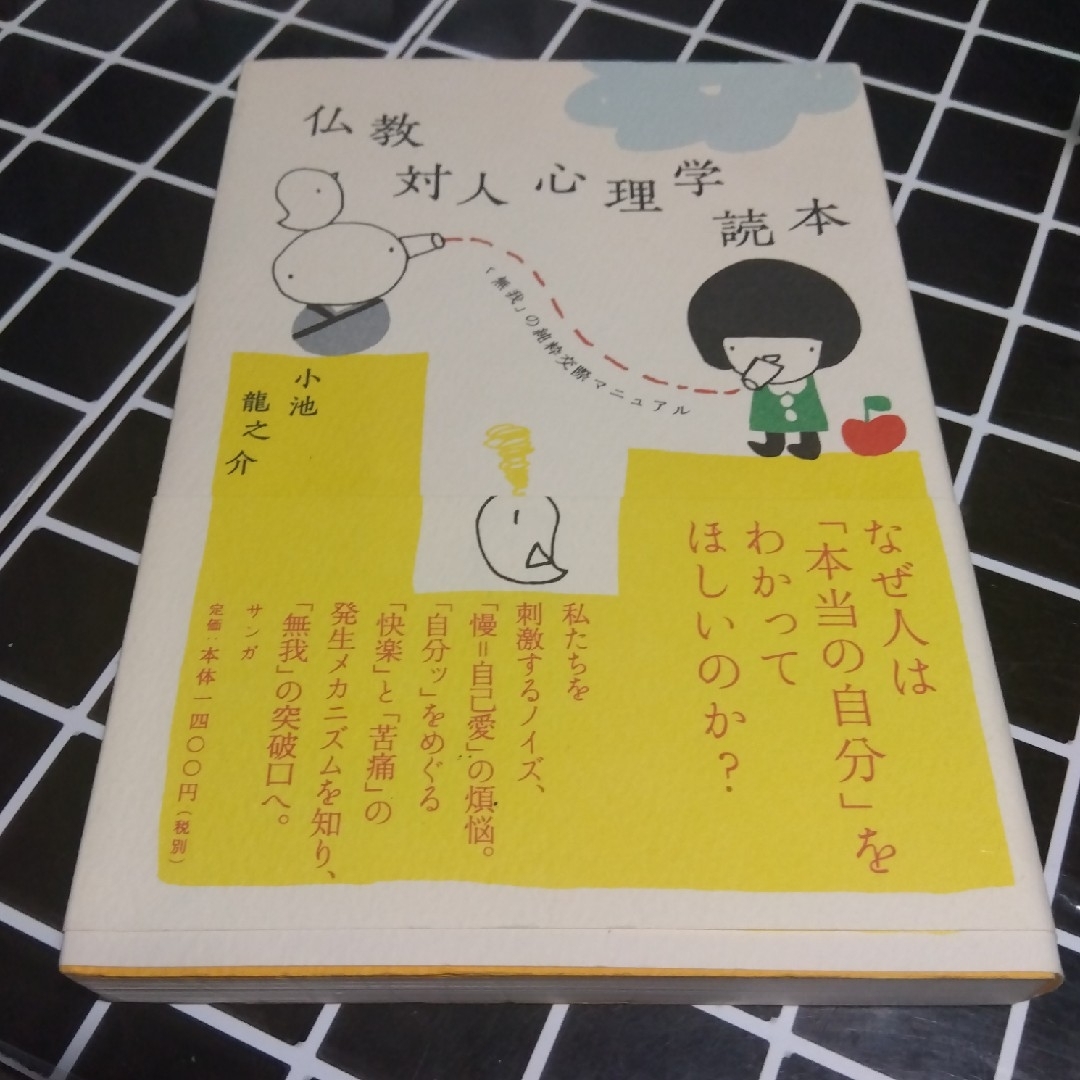 仏教
対人心理学
読本
「無我」の純粋交際マニュアル
小池
龍之介
なぜ人は
「本当の自分」を
わかって
ほしいのか?
私たちを
刺激するノイズ、
「慢＝自己愛」の煩悩。
「自分ッ」をめぐる
「快楽」と「苦痛」の
発生メカニズムを知り、
「無我」の突破口へ。
サンガ
定価:本体一四〇〇円(税別)